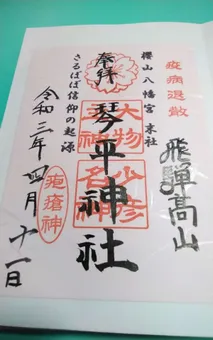 疫病退散
飛騨高山
櫻山八幡宮 末社
奉拝
琴平神社
大物
主神
少彦
名神
さるぼぼ信仰の起源
令和三年四月十一日
疱瘡神